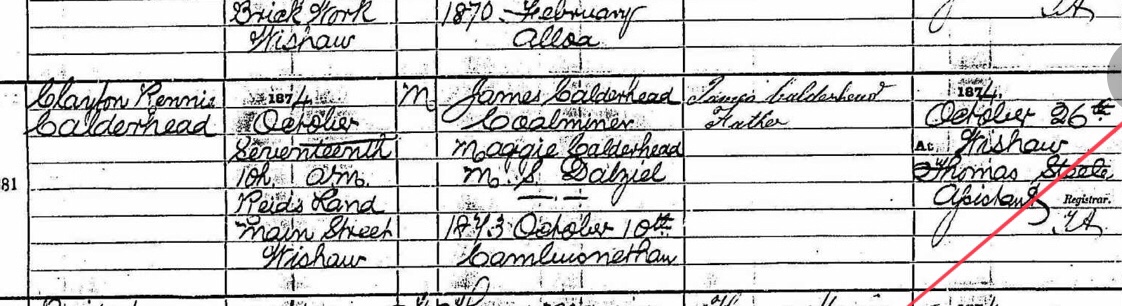 Brick Work
Wishaw
1870 - February
Alloa
81
Clayton Rennie
Calderhead
1874
October
Seventeenth
10h. 0 m.
Reids Land
Main Street
Wishaw
M
James Calderhead
Coalminer
Maggie Calderhead
M.S Dalziel
1873 October 10th
Cambusnethan
James Calderhead
Father
1874
October 26th
At Wishaw
Thomas Steele
Assistant
Registrar.